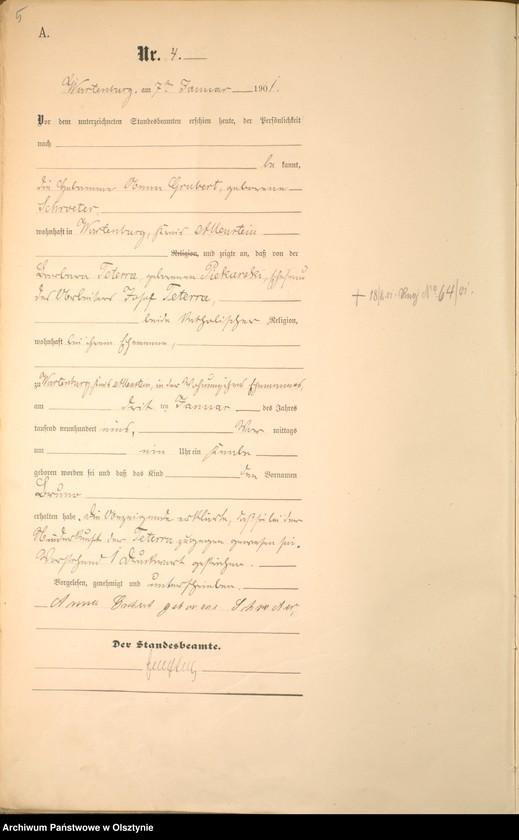 5
A.
Nr. 4.
Wartenburg, am 7ten Januar 1901.
Vor dem unterzeichneten Standesbeamten erschien heute, der Persönlichkeit
nach
be kannt,
die Hebamme Anna Grubert, geborene
Schroeter,
wohnhaft in Wartenburg, Kreis Allenstein
Religion, und zeigte an, daß von der
Barbara Teterra, geborenen Piekarski, Ehefrau
des Arbeiters Josef Teterra,
beide katholischer Religion,
wohnhaft bei ihrem Ehemanne,
zu Wartenburg Kreis Allenstein, in der Wohnung ihres Ehemannes,
am drit ten Januar des Jahres
tausend neunhundert eins, Vor mittags
um ein Uhr ein Knabe
geboren worden sei und daß das Kind den Vornamen
Bruno
erhalten habe. Die Anzeigende erklärte, daß sie bei der
Niederkunft der Teterra zugegen gewesen sei.
Vorstehend 1 Druckwort gestrichen.
Vorgelesen, genehmigt und unterschrieben.
Anna geborene Schroter,
Der Standesbeamte.
+ 18/ 01. No 64/01.
Archiwum Państwowe w Olsztynie